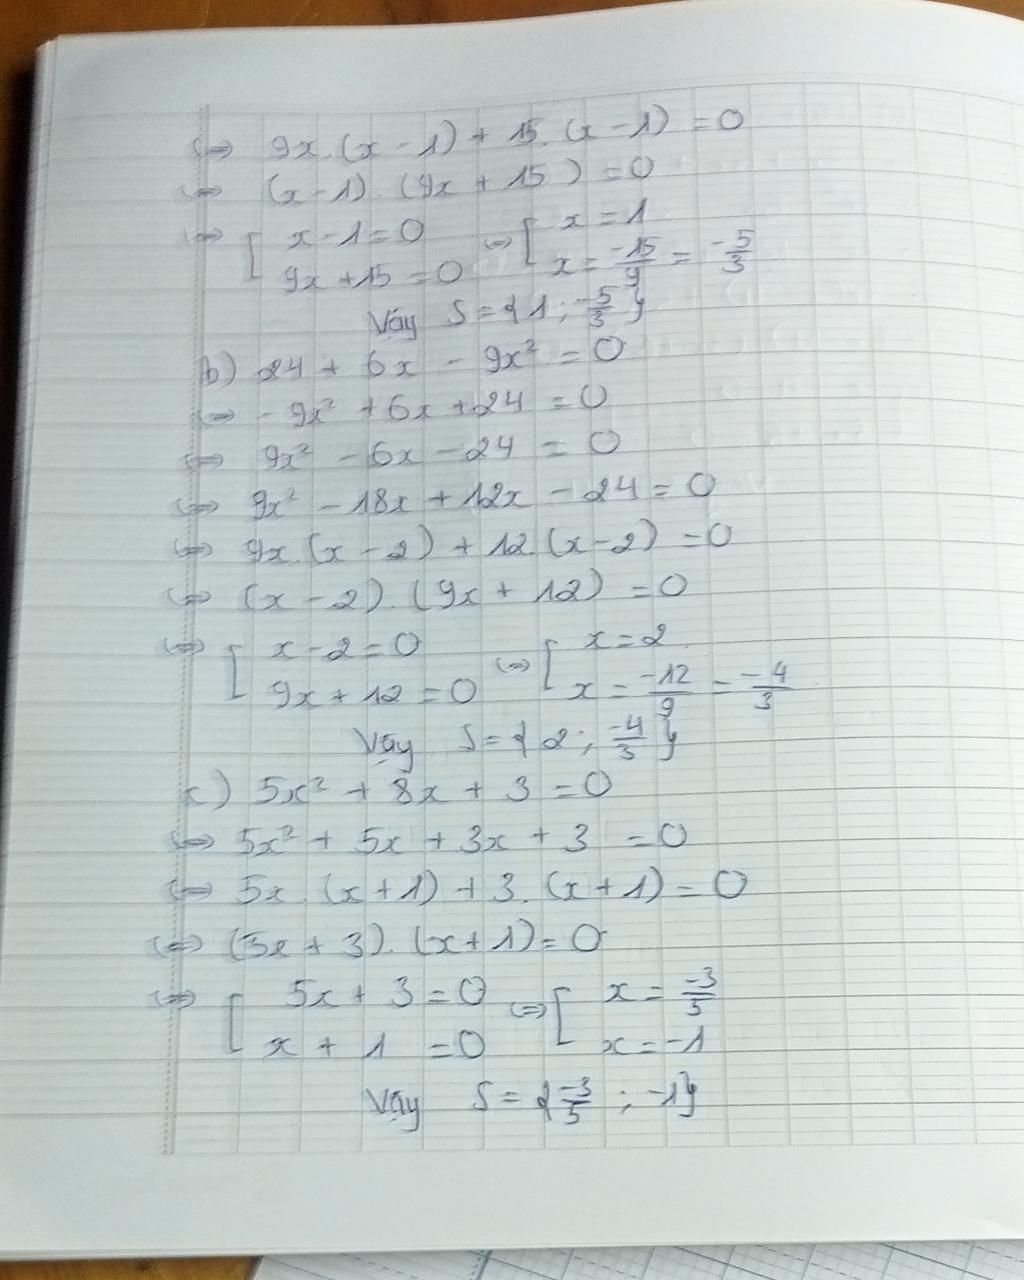 ⇔ 9x.(x - 1) + 15.(x - 1) = 0
⇔ (x - 1).(9x + 15) = 0
⇔ [ x - 1 = 0 ⇔ [ x = 1
9x + 15 = 0 x = -15/9 = -5/3
Vậy S = {1; -5/3}
b) 24 + 6x - 9x² = 0
⇔ -9x² + 6x + 24 = 0
⇔ 9x² - 6x - 24 = 0
⇔ 9x² - 18x + 12x - 24 = 0
⇔ 9x.(x - 2) + 12.(x - 2) = 0
⇔ (x - 2).(9x + 12) = 0
⇔ [ x - 2 = 0 ⇔ [ x = 2
9x + 12 = 0 x = -12/9 = -4/3
Vậy S = {2; -4/3}
c) 5x² + 8x + 3 = 0
⇔ 5x² + 5x + 3x + 3 = 0
⇔ 5x.(x + 1) + 3.(x + 1) = 0
⇔ (5x + 3).(x + 1) = 0
⇔ [ 5x + 3 = 0 ⇔ [ x = -3/5
x + 1 = 0 x = -1
Vậy S = {-3/5; -1}